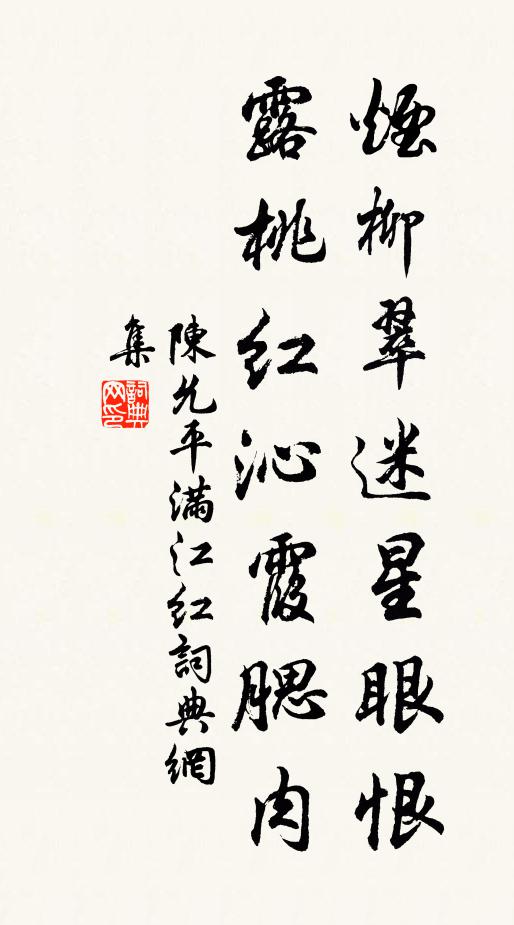 煙柳翠迷星眼恨
露桃紅沁霞腮肉
陳允平滿江紅詞典網
集
詞典網印